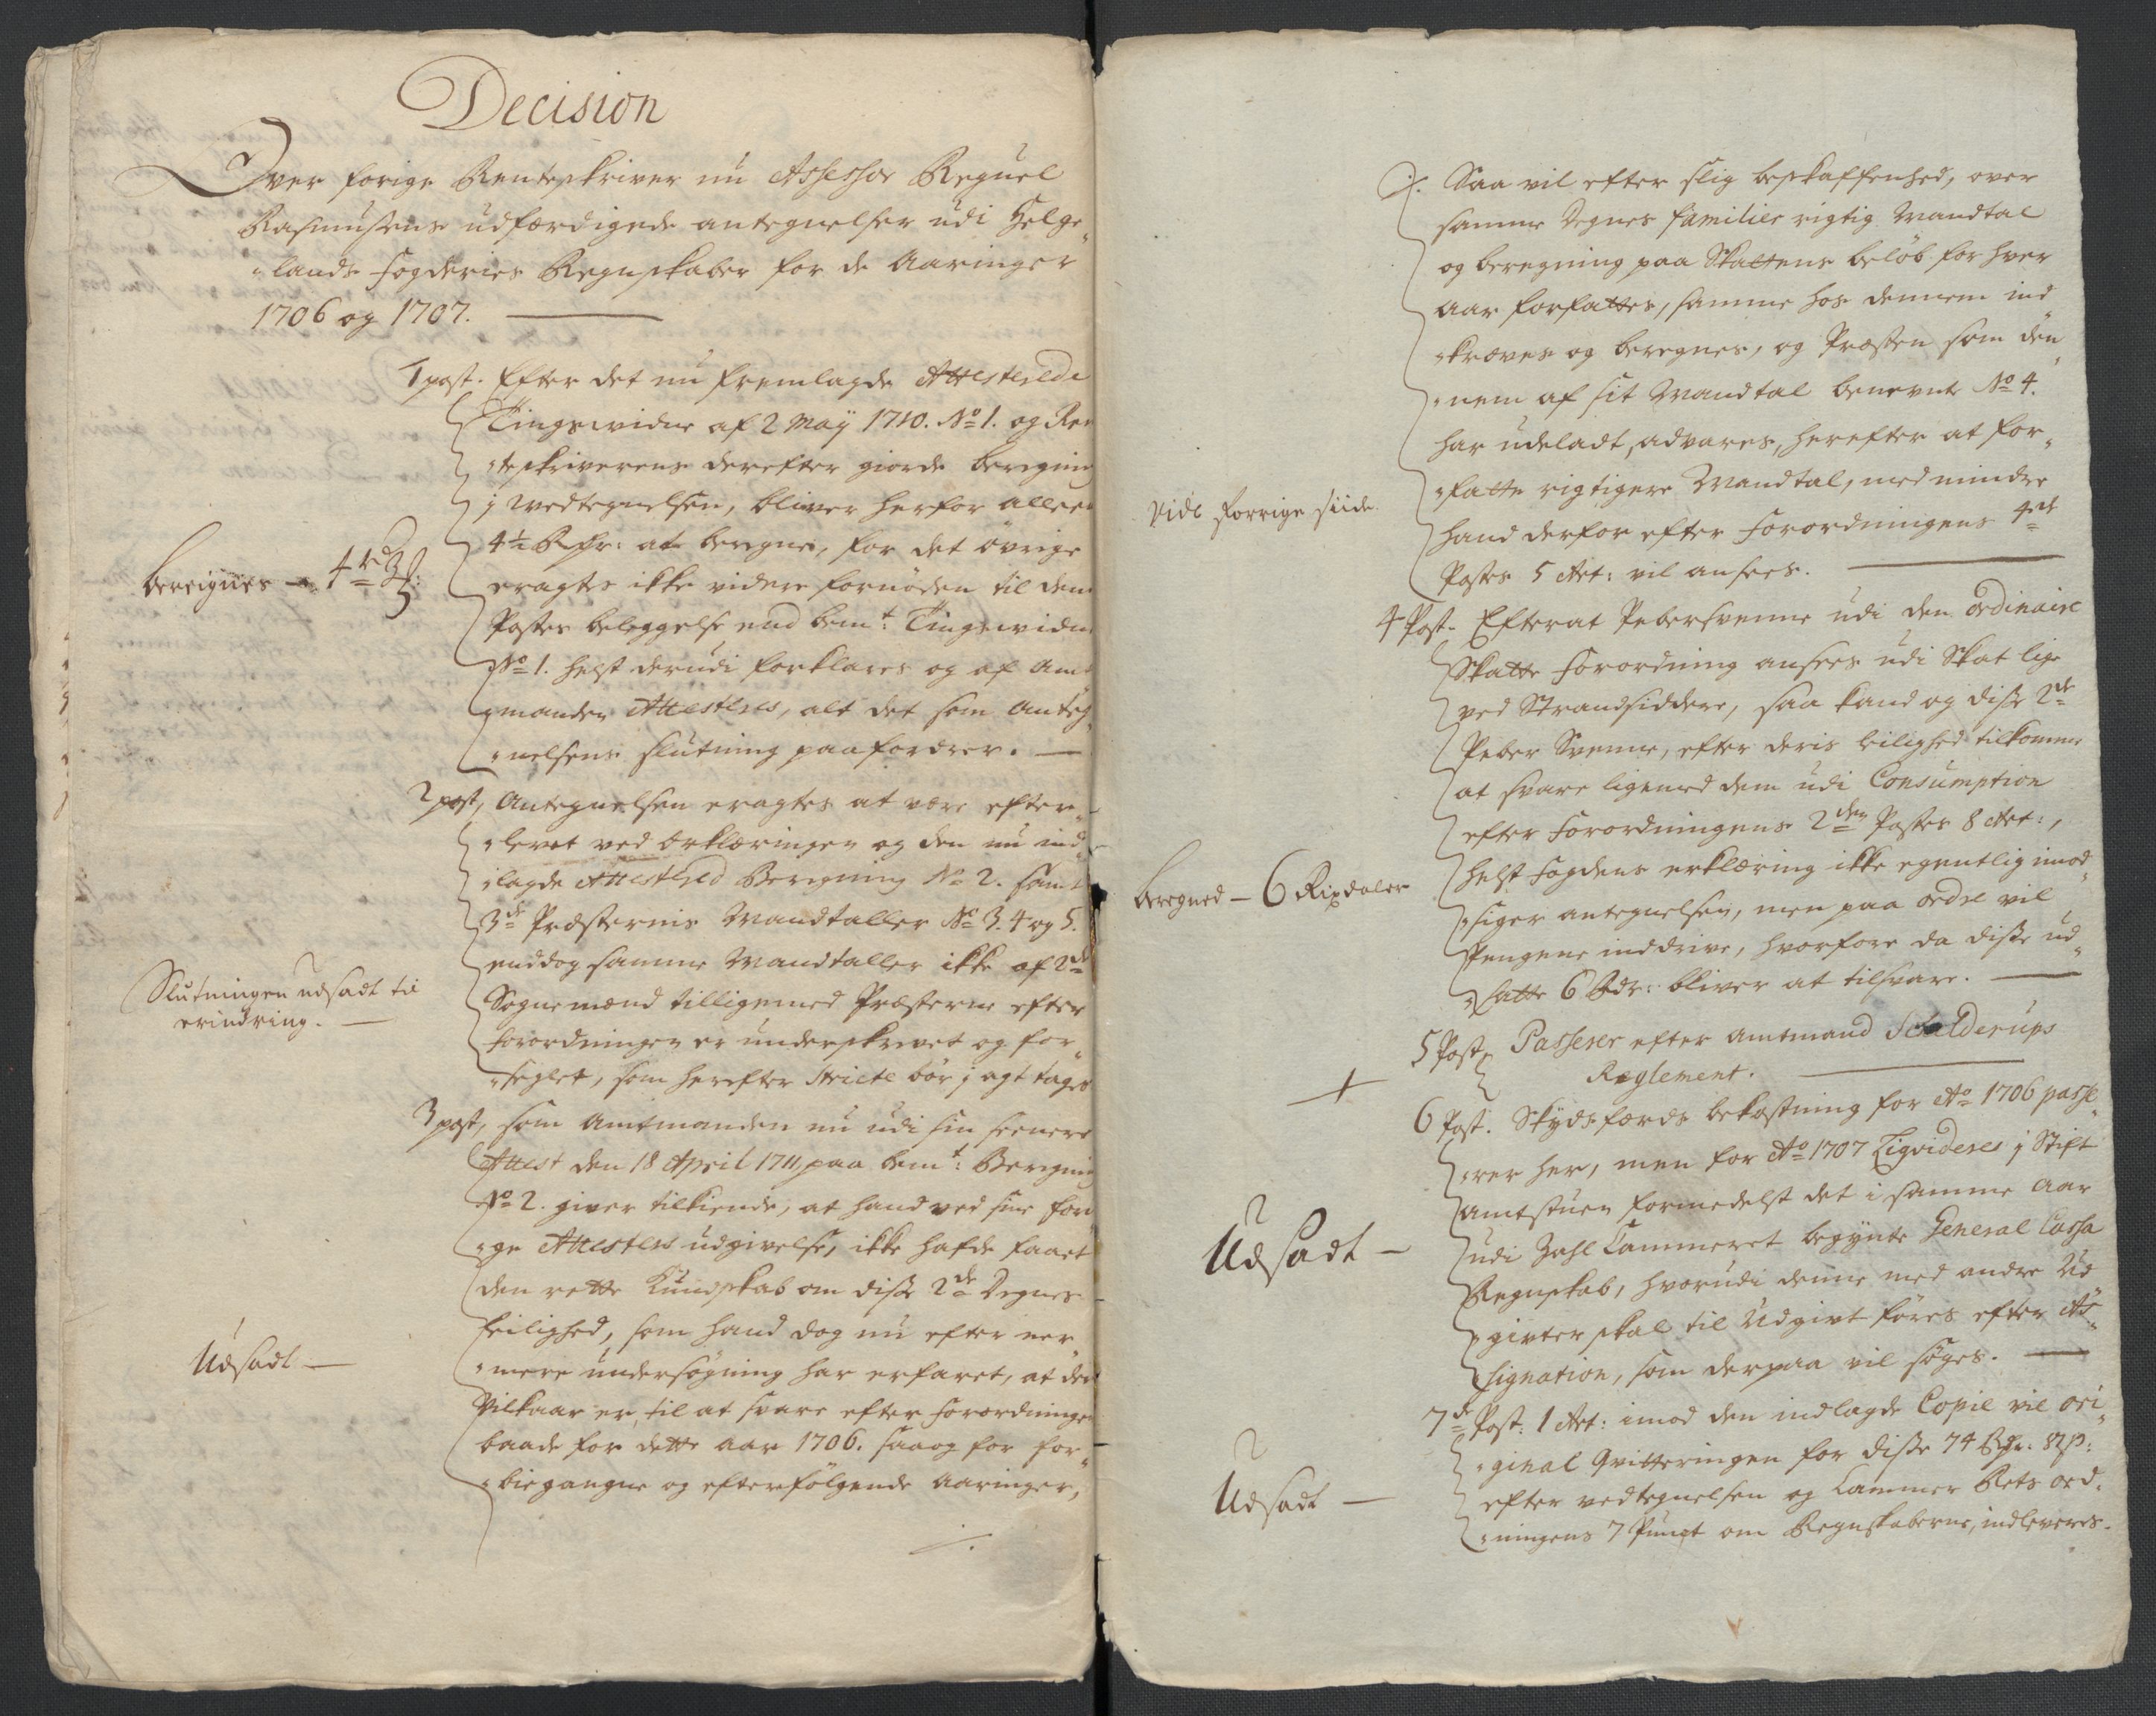 Decision
Over forige Renteskriver nu Assessor Reguel
Rasmusens udfærdigede antegnelser udi Helge„
„lands Fogderies Regnskaber for de Aaringer
1706 og 1707.
1 post. Efter det nu fremlagde Attesterede
Tingsvidne af 2 Maÿ 1710. No 1. og Ren
„teskriverens derefter giorde beregning
j vedtegnelsen, bliver herfor alleen
4½ Rdr: at beregne, for det øvrige
bereignes – 4
eragtes ikke videre fornøden til denne
Postes beleggelse end bemt: Tingsvidne
No 1. helst derudi forklares og af Amt
„manden Attesteres, alt det som Anteg„
„nelsens slutning paafordrer. —
2 post, Antegnelsen eragtes at være efter„
„levet ved erklæringen og den nu ind„
„lagde Attestered Beregning No 2. samt
3de Præsternis Mandtaller No 3. 4 og 5.
enddog samme Mandtaller ikke af 2de
Slutningen udsadt til
erindring. —
Sognemænd tilligemed Præsterne efter
Forordningen er underskrevet og for„
„seglet, som herefter Stricte bør j agt tages
3 post, som Amtmanden nu udi sin seenere
Attest den 18 April 1711, paa bemt: Beregning
No 2. giver tilkiende, at hand ved sine fori
„ge Attesters udgivelse, ikke hafde faaet
den rette Kundskab om disse 2de Degnes
leilighed, som hand dog nu efter ner
Udsadt —
„mere undersøgning har erfaret, at der
Vilkaar er, til at svare efter Forordningen
baade for dette aar 1706. saaog for for„
„biegangne og efterfølgende Aaringer,
./.
./. Saa vil efter slig beskaffenhed, over
samme Degnes familier rigtig Mandtal
og beregning paa Skattens beløb for hver
aar forfattes, samme hos dennem ind
„kræves og beregnes, og Præsten som den„
„nem af sit Mandtal benevnte No 4.
har udeladt, advares, herefter at for„
„fatte rigtigere Mandtal, med mindre
Vide forrige siide
hand derfor efter Forordningens 4de
Postes 5 Art: vil ansees. —
4 Post. Efterat Pebersvenne udi den ordinaire
Skatte Forordning ansees udi Skat lige
ved Strandsiddere, saa kand og disse 2de
Peber Svenne, efter deris leilighed tilkomme
at svare ligemed dem udi Consumption
efter Forordningens 2den Postes 8 Art:,
beregned – 6 Rixdaler
helst Fogdens erklæring ikke egentlig imod„
„siger antegnelsen, men paa ordre vil
Pengene inddrive, hvorfore da disse ud„
„satte 6 Rdr: bliver at tilsvare. —
5 Post, Passerer efter Amtmand Schelderups
Reglement. —
+
6 Post. Skydsfærds bekostning for Ao 1706 passe„
„rer her, men for Ao 1707 Liqvideres j Stift
Amtstuen formedelst det i samme Aar
Udsadt —
udi Zahl Cammeret begynte General Cassa
Regnskab, hvorudi denne med andre Ud„
„givter skal til Udgivt føres efter As„
„signation, som derpaa vil søges. —
7de Post: 1 Art: imod den indlagde Copie vil ori„
„ginal Qvitteringen for disse 74 Rdr.
Udsadt —
efter vedtegnelsen og Cammer Rets ord„
„ningens 7 Punct om Regnskaberne, indleveres.